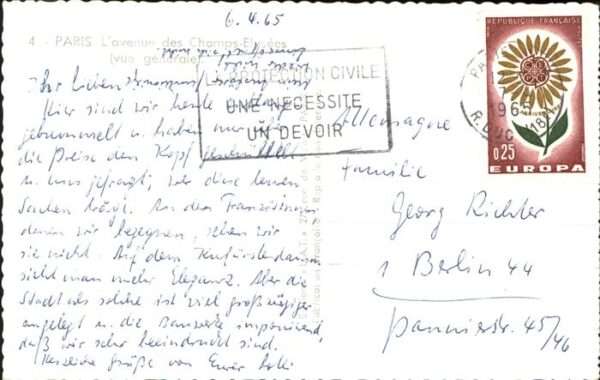 6.4.65
4 - PARIS L'avenue des Champs-Elysées
(vue générale)
Ihr Lieben
Hier sind wir heute
gebummelt u. haben nur
die Preise den Kopf geschüttelt
u. uns gefragt, wer diese teuren
Sachen trägt. An den Französinnen
denen wir begegnen, sehen wir
sie nicht. Auf dem Kurfürstendamm
sieht man mehr Eleganz. Aber die
Stadt als solche ist viel großzügiger
angelegt u. die Bauwerke imponierend,
daß wir sehr beeindruckt sind.
Herzliche Grüße von Eurer
PROTECTION CIVILE
UNE NECESSITE
UN DEVOIR
REPUBLIQUE FRANÇAISE
PA
1965
R. DUC
0,25
EUROPA
Allemagne
Familie
Georg Richter
1 Berlin 44
Pannierstr. 45/46